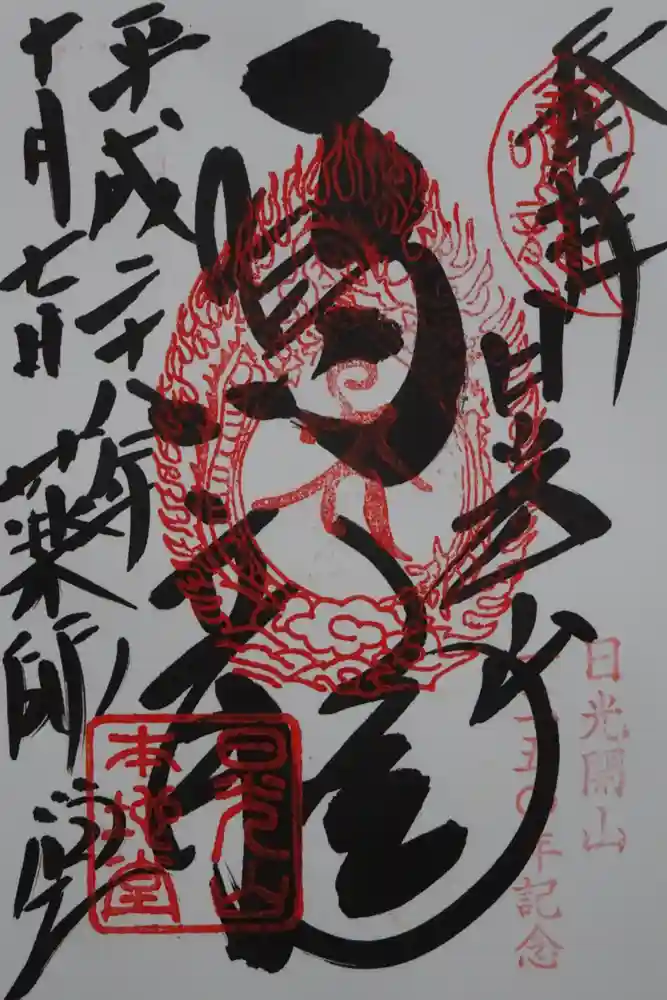 奉拝
日光山
日光開山
一二五〇年記念
鳴龍
平成二十八年
十月七日
薬師堂
日光山
本地堂